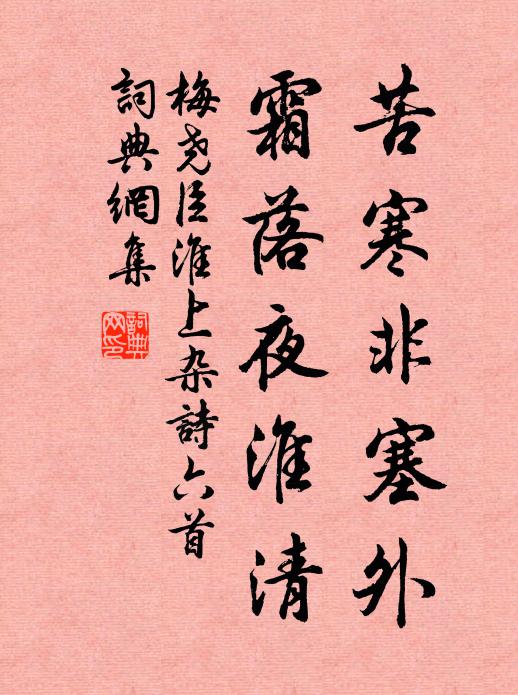 苦寒非塞外
霜落夜淮清
梅尧臣淮上杂詩六首
詞典網集
詞典网印